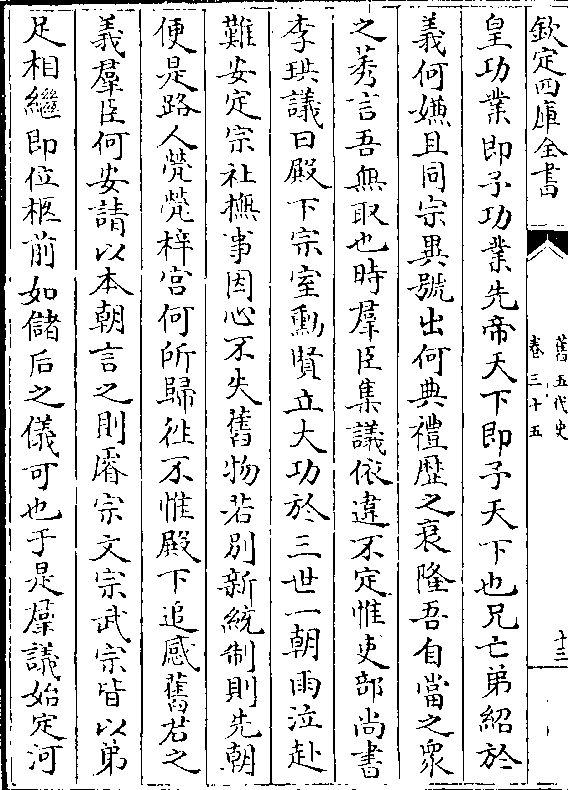 欽定四庫全書
舊五代史
卷三十五
十三
皇功業即予功業先帝天下即予天下也兄亡弟紹於
義何嫌且同宗異號出何典禮歴之衰隆吾自當之衆
之莠言吾無取也時羣臣集議依違不定惟吏部尚書
李珙議曰殿下宗室勳賢立大功於三世一朝雨泣赴
難安定宗社撫事因心不失舊物若別新統制則先朝
便是路人煢煢梓宫何所歸徃不惟殿下追感舊君之
義羣臣何安請以本朝言之則睿宗文宗武宗皆以弟
足相繼即位柩前如儲后之儀可也于是羣議始定河